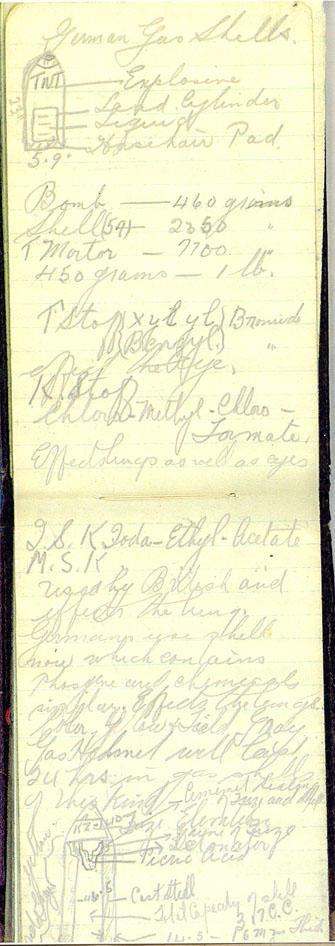 German Gas Shells.
TNT
Explosive
Lead Cylinder
Liquid
Horsehair Pad.
5.9"
Bomb — 460 grams
Shell (5.9) 2350 "
T Mortor — 7700. "
450 grams — 1 lb.
T Stoff (Xylyl) Bromide
(Benzyl) "
Effect the Eye.
K. Stoff
Chloro-Methyl-Chloro-
Formate.
Effect lungs as well as eyes
I. S. K Ioda-Ethyl-Acetate
M. S. K
used by British and
effects the lung.
Germans use shell
now which contains
Phosgene and chemicals
similar. Effects the lungs.
Gas Helmet will last
24 hrs. in gas
of this kind.
Detonator
Picric Acid
Cast Steel
Total Capacity of shell